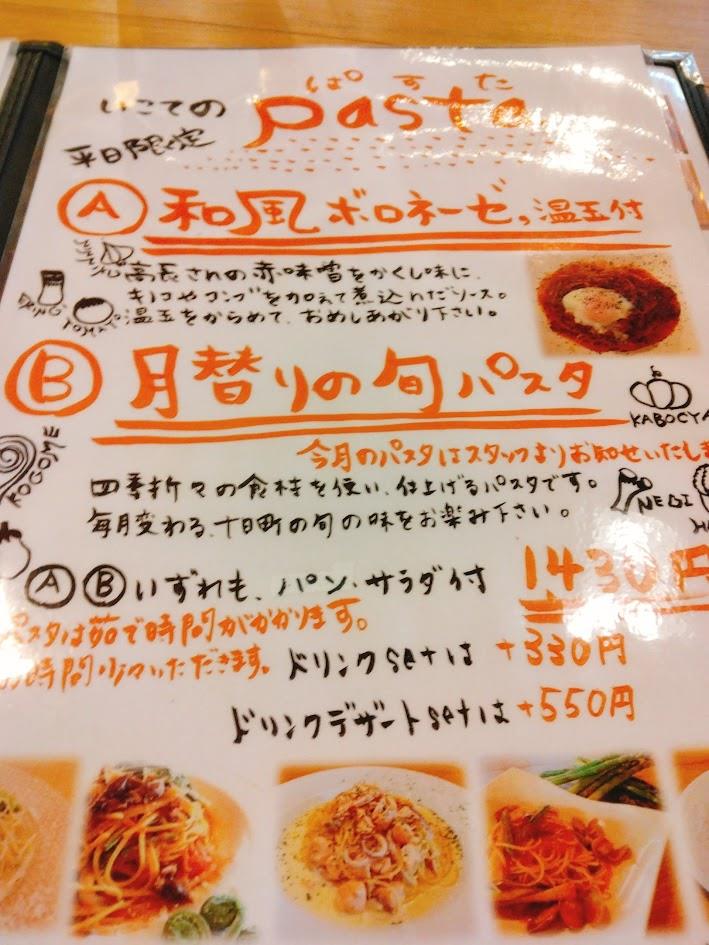 ぱすた
いこての pasta
平日限定
Ⓐ 和風ボロネーゼ, 温玉付
高長さんの赤味噌をかくし味に、
キノコやコンブを加えて煮込んだソース。
温玉をからめて、おめしあがり下さい。
ERINGI
TOMATO
Ⓑ 月替りの旬パスタ
KABOCYA
今月のパスタはスタッフよりお知せいたしま
KOGOME
四季折々の食材を使い、仕上げるパスタです。
毎月変わる、十日町の旬の味をお楽み下さい。
NEGI
ⒶⒷいずれも、パン・サラダ付 1430円
パスタは茹で時間がかかります。
お時間少々いただきます。
ドリンクsetは +330円
ドリンクデザートsetは +550円